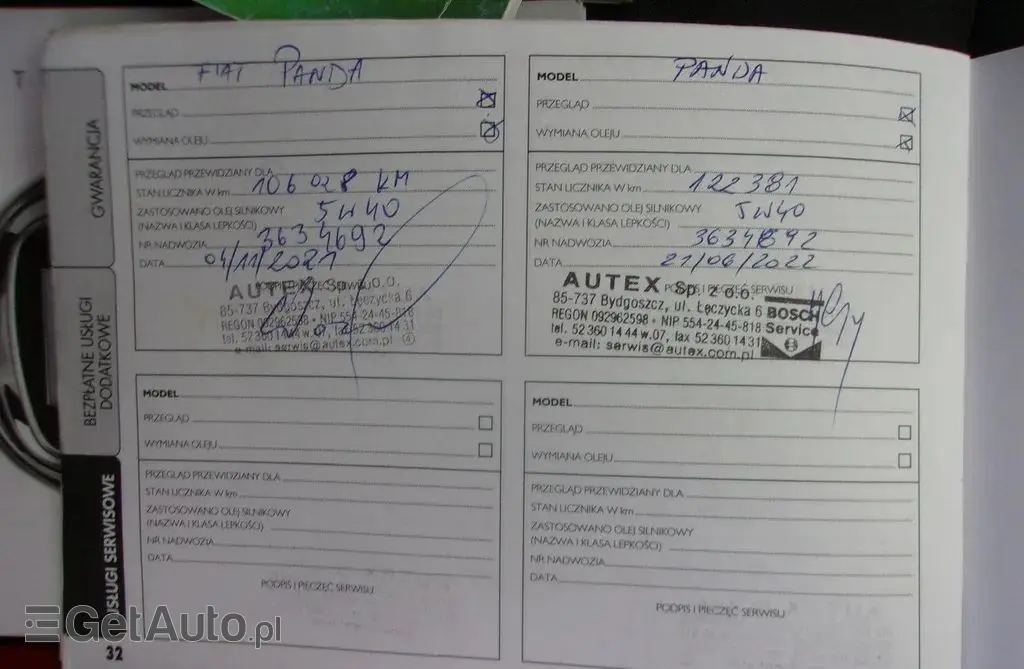 GWARANCJA
BEZPŁATNE USŁUGI
DODATKOWE
USŁUGI SERWISOWE
32
MODEL FIAT PANDA
PRZEGLĄD
WYMIANA OLEJU
PRZEGLĄD PRZEWIDZIANY DLA
STAN LICZNIKA W km 106 028 KM
ZASTOSOWANO OLEJ SILNIKOWY 5W40
(NAZWA I KLASA LEPKOŚCI)
NR NADWOZIA 3634692
DATA 04/11/2021
AUTEX Sp. z o.o.
85-737 Bydgoszcz, ul. Łęczycka 6
REGON 092962598 • NIP 554-24-45-818
tel. 52 360 14 44 w.07, fax 52 360 14 31
e-mail: serwis@autex.com.pl ④
MODEL PANDA
PRZEGLĄD
WYMIANA OLEJU
PRZEGLĄD PRZEWIDZIANY DLA
STAN LICZNIKA W km 122381
ZASTOSOWANO OLEJ SILNIKOWY 5W40
(NAZWA I KLASA LEPKOŚCI)
NR NADWOZIA
DATA 21/06/2022
PODPIS I PIECZĘĆ SERWISU
AUTEX Sp. z o.o.
85-737 Bydgoszcz, ul. Łęczycka 6
REGON 092962598 • NIP 554-24-45-818
tel. 52 360 14 44 w.07, fax 52 360 14 31
e-mail: serwis@autex.com.pl
BOSCH
Service
MODEL
PRZEGLĄD
WYMIANA OLEJU
PRZEGLĄD PRZEWIDZIANY DLA
STAN LICZNIKA W km
ZASTOSOWANO OLEJ SILNIKOWY
(NAZWA I KLASA LEPKOŚCI)
NR NADWOZIA
DATA
PODPIS I PIECZĘĆ SERWISU
MODEL
PRZEGLĄD
WYMIANA OLEJU
PRZEGLĄD PRZEWIDZIANY DLA
STAN LICZNIKA W km
ZASTOSOWANO OLEJ SILNIKOWY
(NAZWA I KLASA LEPKOŚCI)
NR NADWOZIA
DATA
PODPIS I PIECZĘĆ SERWISU
GetAuto.pl